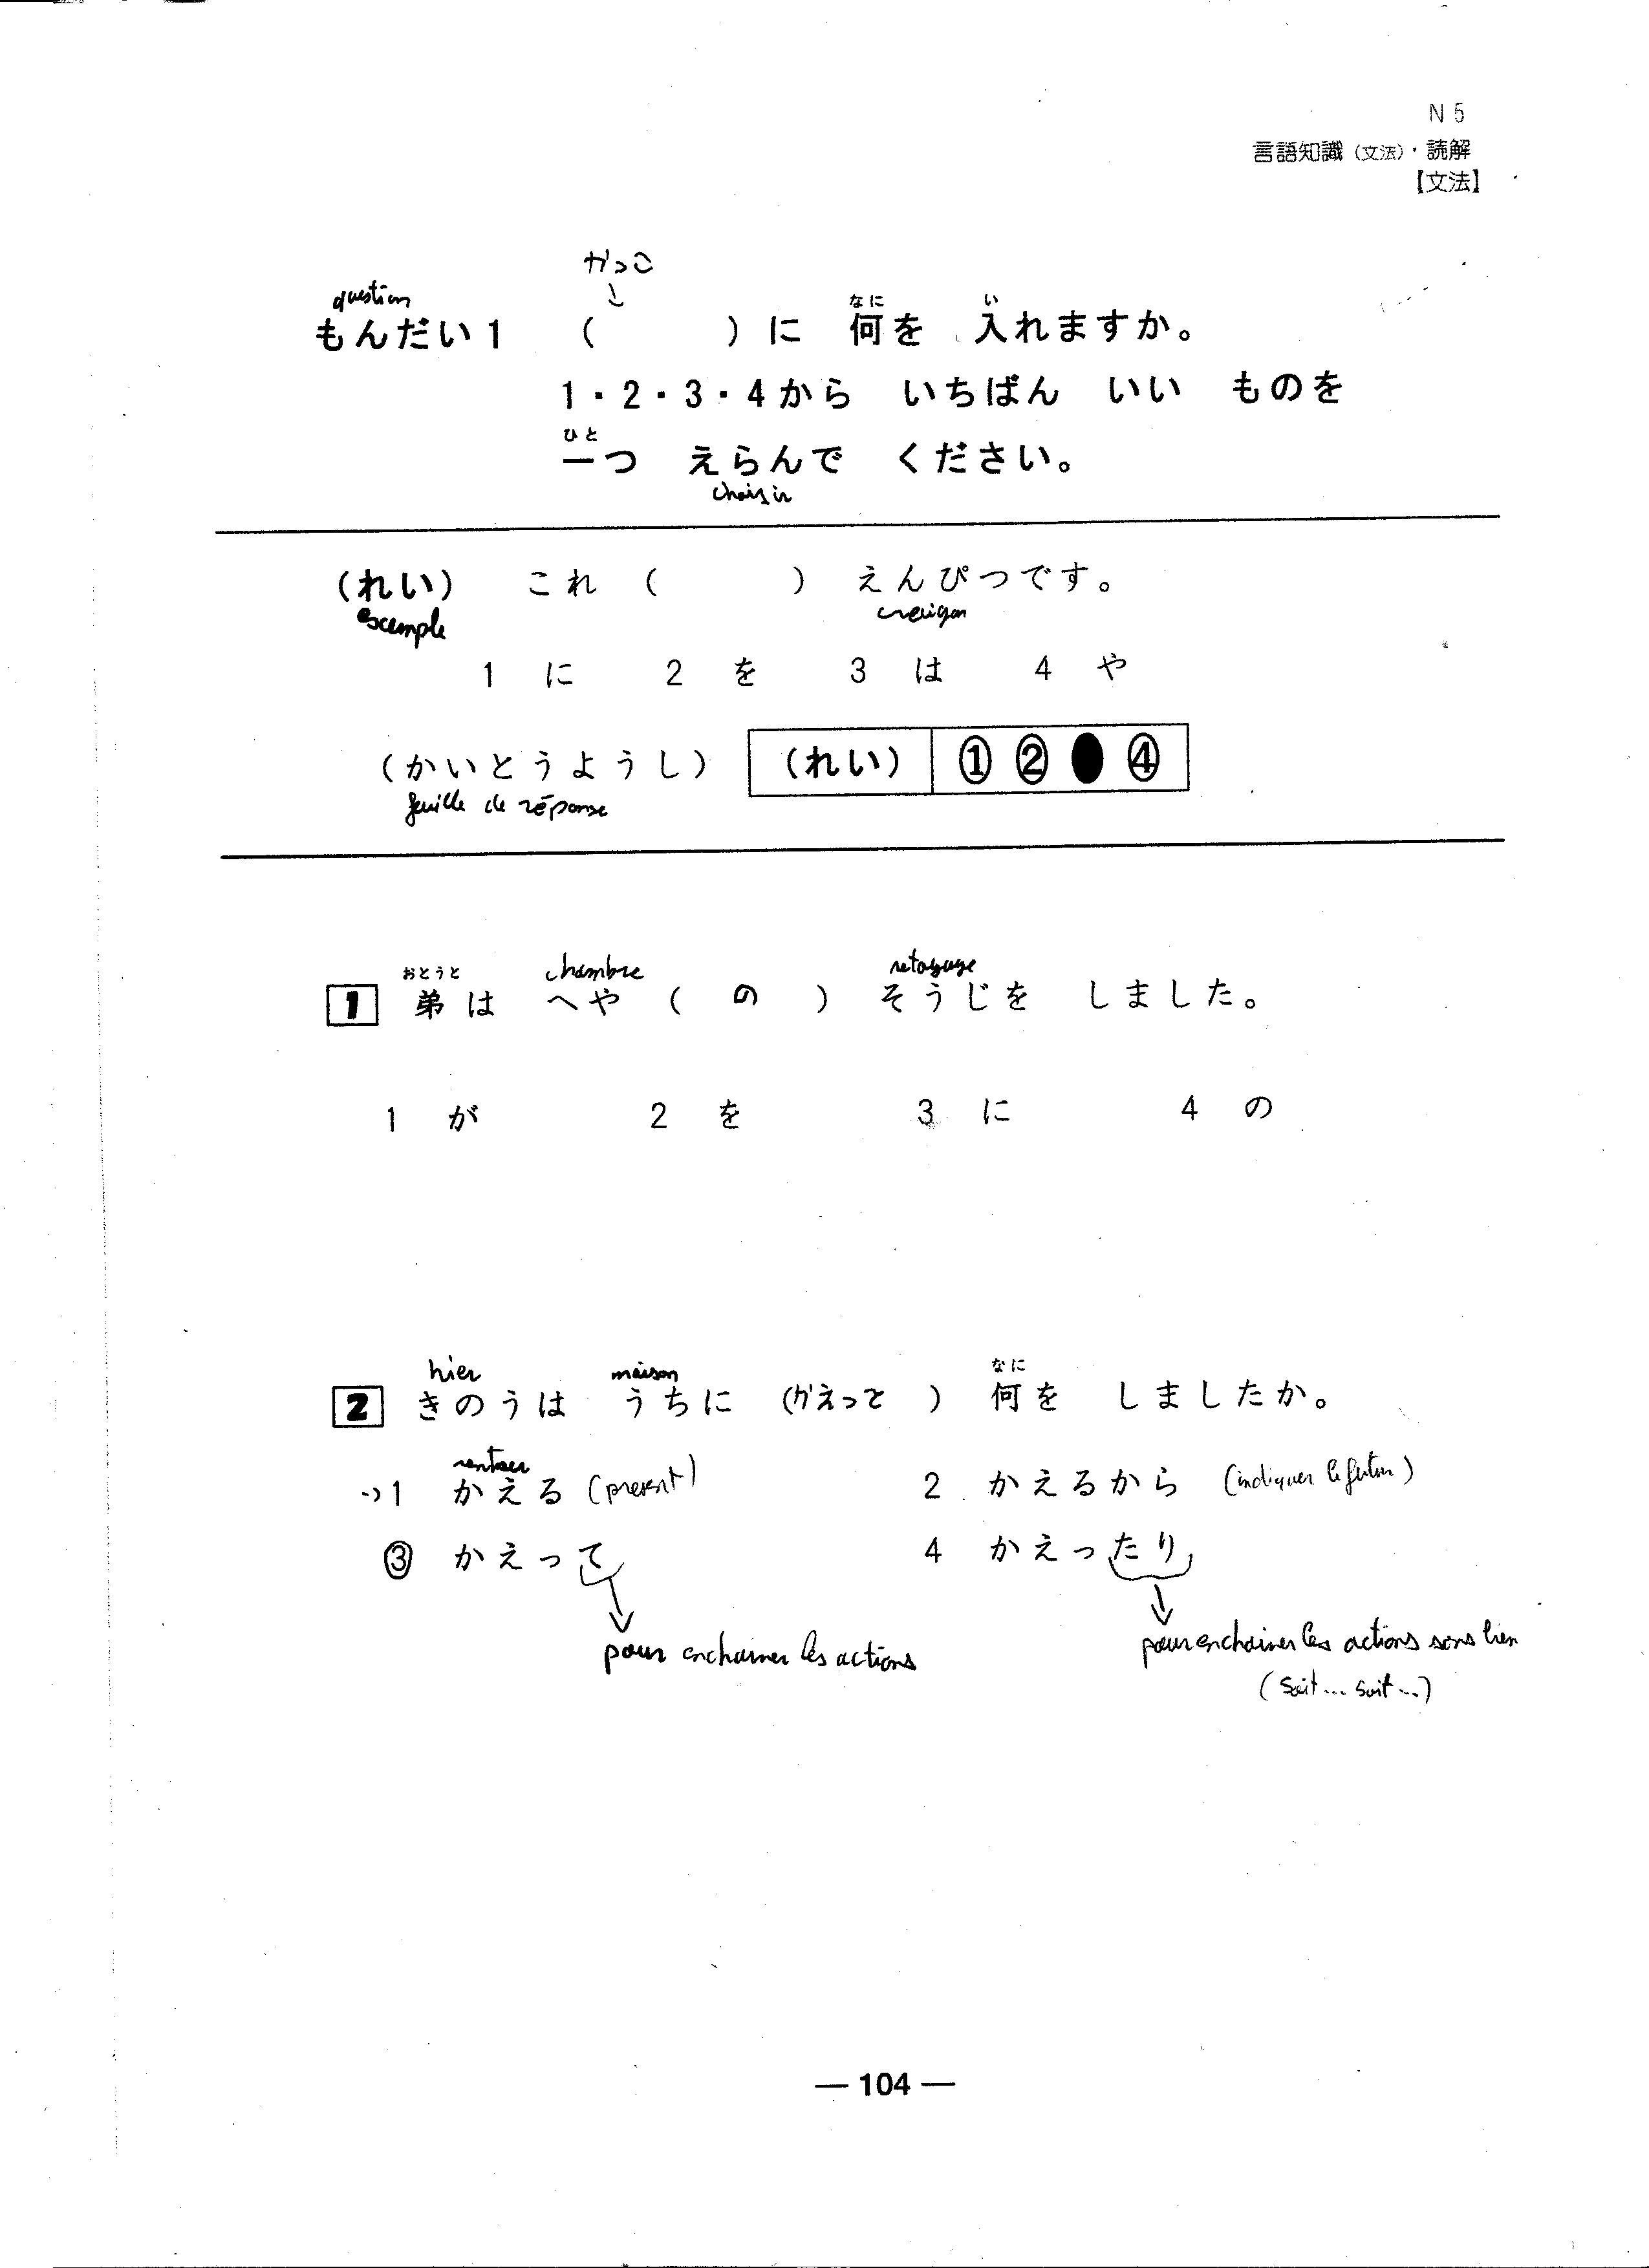 N5
言語知識（文法）・読解
【文法】
かっこ
question
もんだい1　（　　　）に　何を　入れますか。
なに　い
1・2・3・4から　いちばん　いい　ものを
ひと
一つ　えらんで　ください。
choisir
（れい）　これ（　　　）えんぴつです。
exemple
1　に　2　を　3　は　4　や
（かいとうようし）　（れい）　①　②　●　④
feuille de réponse
おとうと　chambre
1　弟は　へや（　の　）そうじを　しました。
1　が　2　を　3　に　4　の
hier　maison　なに
2　きのうは　うちに（かえっと　）何を　しましたか。
rentrer
1　かえる（present）　2　かえるから（indiquer le futur）
③　かえって　4　かえったり
pour enchainer les actions　pour enchainer les actions sans lien
（soit... soit...）
— 104 —